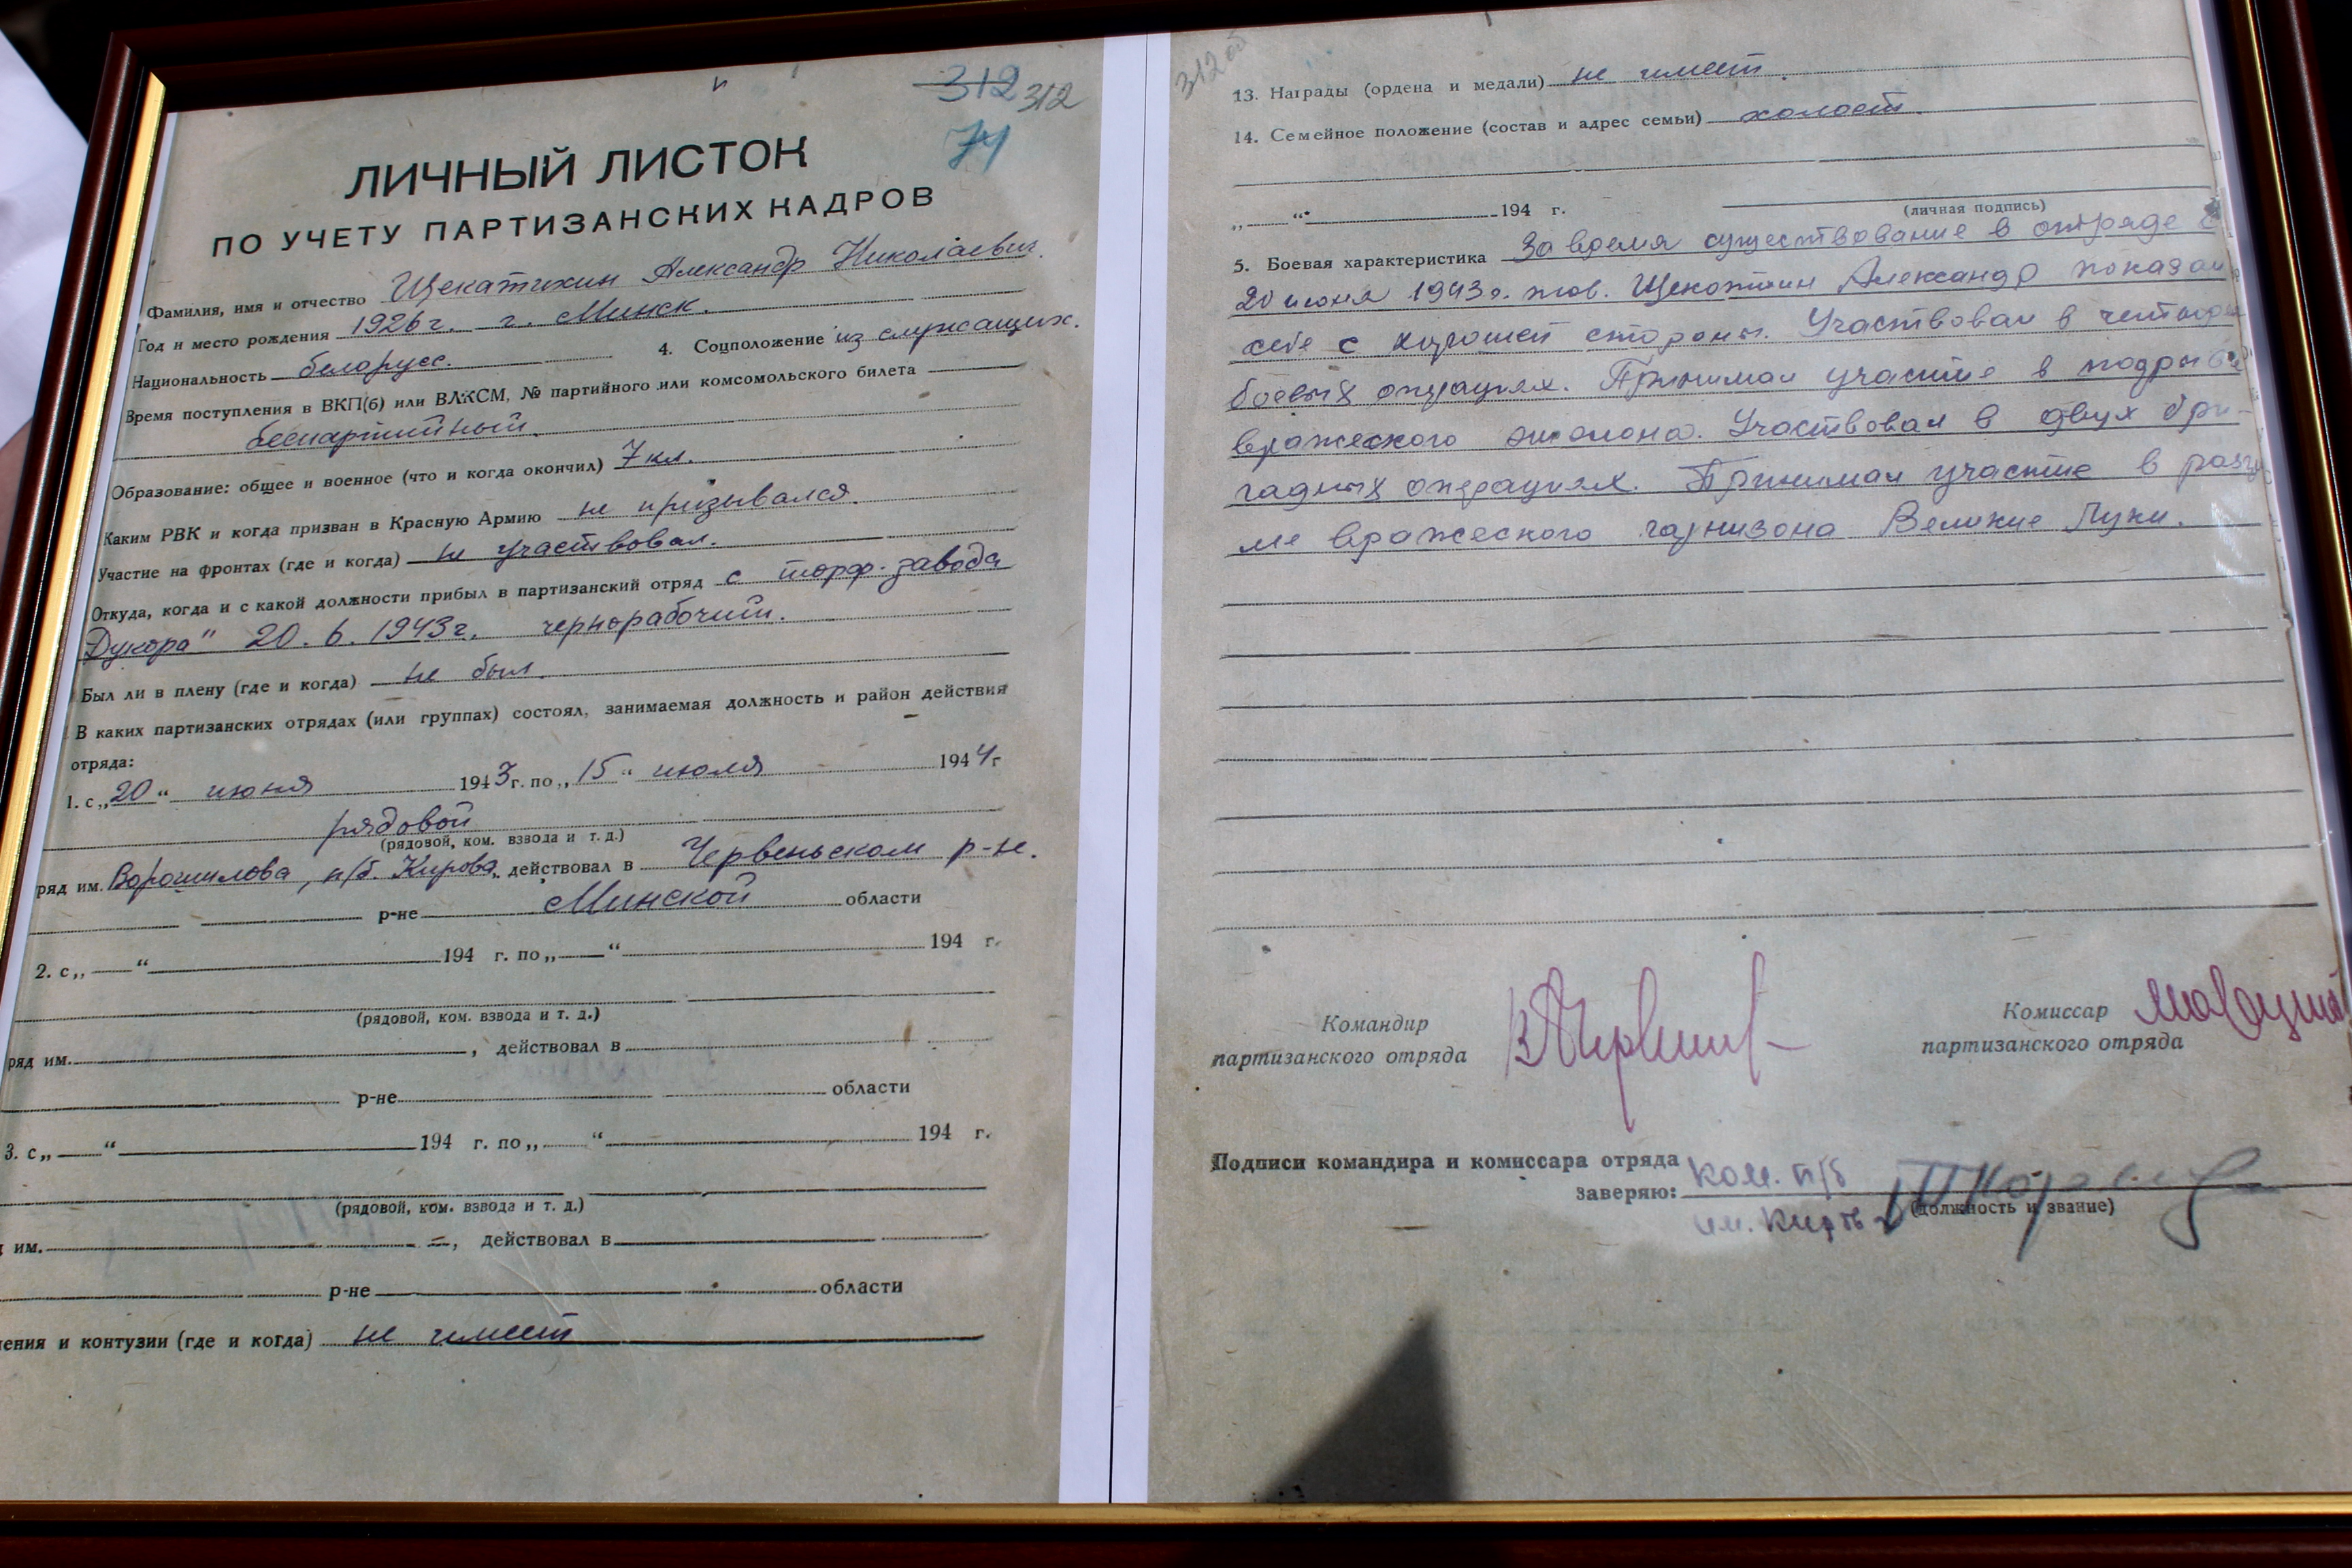 312 312
74
ЛИЧНЫЙ ЛИСТОК
ПО УЧЕТУ ПАРТИЗАНСКИХ КАДРОВ
Фамилия, имя и отчество Щекатихин Александр Николаевич.
Год и место рождения 1926 г. г. Минск.
Национальность белорусс. 4. Соцположение из служащих.
Время поступления в ВКП(б) или ВЛКСМ, № партийного или комсомольского билета
беспартийный.
Образование: общее и военное (что и когда окончил) 7 кл.
Каким РВК и когда призван в Красную Армию не призывался.
Участие на фронтах (где и когда) не участвовал.
Откуда, когда и с какой должности прибыл в партизанский отряд с торф. завода
Дукора" 20. 6. 1943 г. чернорабочий.
Был ли в плену (где и когда) не был.
В каких партизанских отрядах (или группах) состоял, занимаемая должность и район действия
отряда:
1. с „20“ июня 1943 г. по „15“ июля 1944 г
рядовой
(рядовой, ком. взвода и т. д.)
ряд им. Ворошилова, п/б. Кирова, действовал в Червеньском р-не.
р-не Минской области
2. с „ “ 194 г. по „ “ 194 г.
(рядовой, ком. взвода и т. д.)
ряд им. , действовал в
р-не области
3. с „ “ 194 г. по „ “ 194 г.
(рядовой, ком. взвода и т. д.)
им. , действовал в
р-не области
ения и контузии (где и когда) не имеет
312 об
13. Награды (ордена и медали) не имеет.
14. Семейное положение (состав и адрес семьи) холост.
„ “ 194 г.
(личная подпись)
5. Боевая характеристика За время существование в отряде с
20 июня 1943 г. тов. Щекотихин Александр показал
себе с хорошей стороны. Участвовал в четырех
боевых операциях. Принимал участие в подрыве
вражеского эшолона. Участвовал в двух бри-
гадных операциях. Принимал участие в разгро
ме вражеского гарнизона Великие Луки.
Командир
партизанского отряда
Комиссар
партизанского отряда
Подписи командира и комиссара отряда
заверяю: ком. п/б
им. Кирова
(должность и звание)